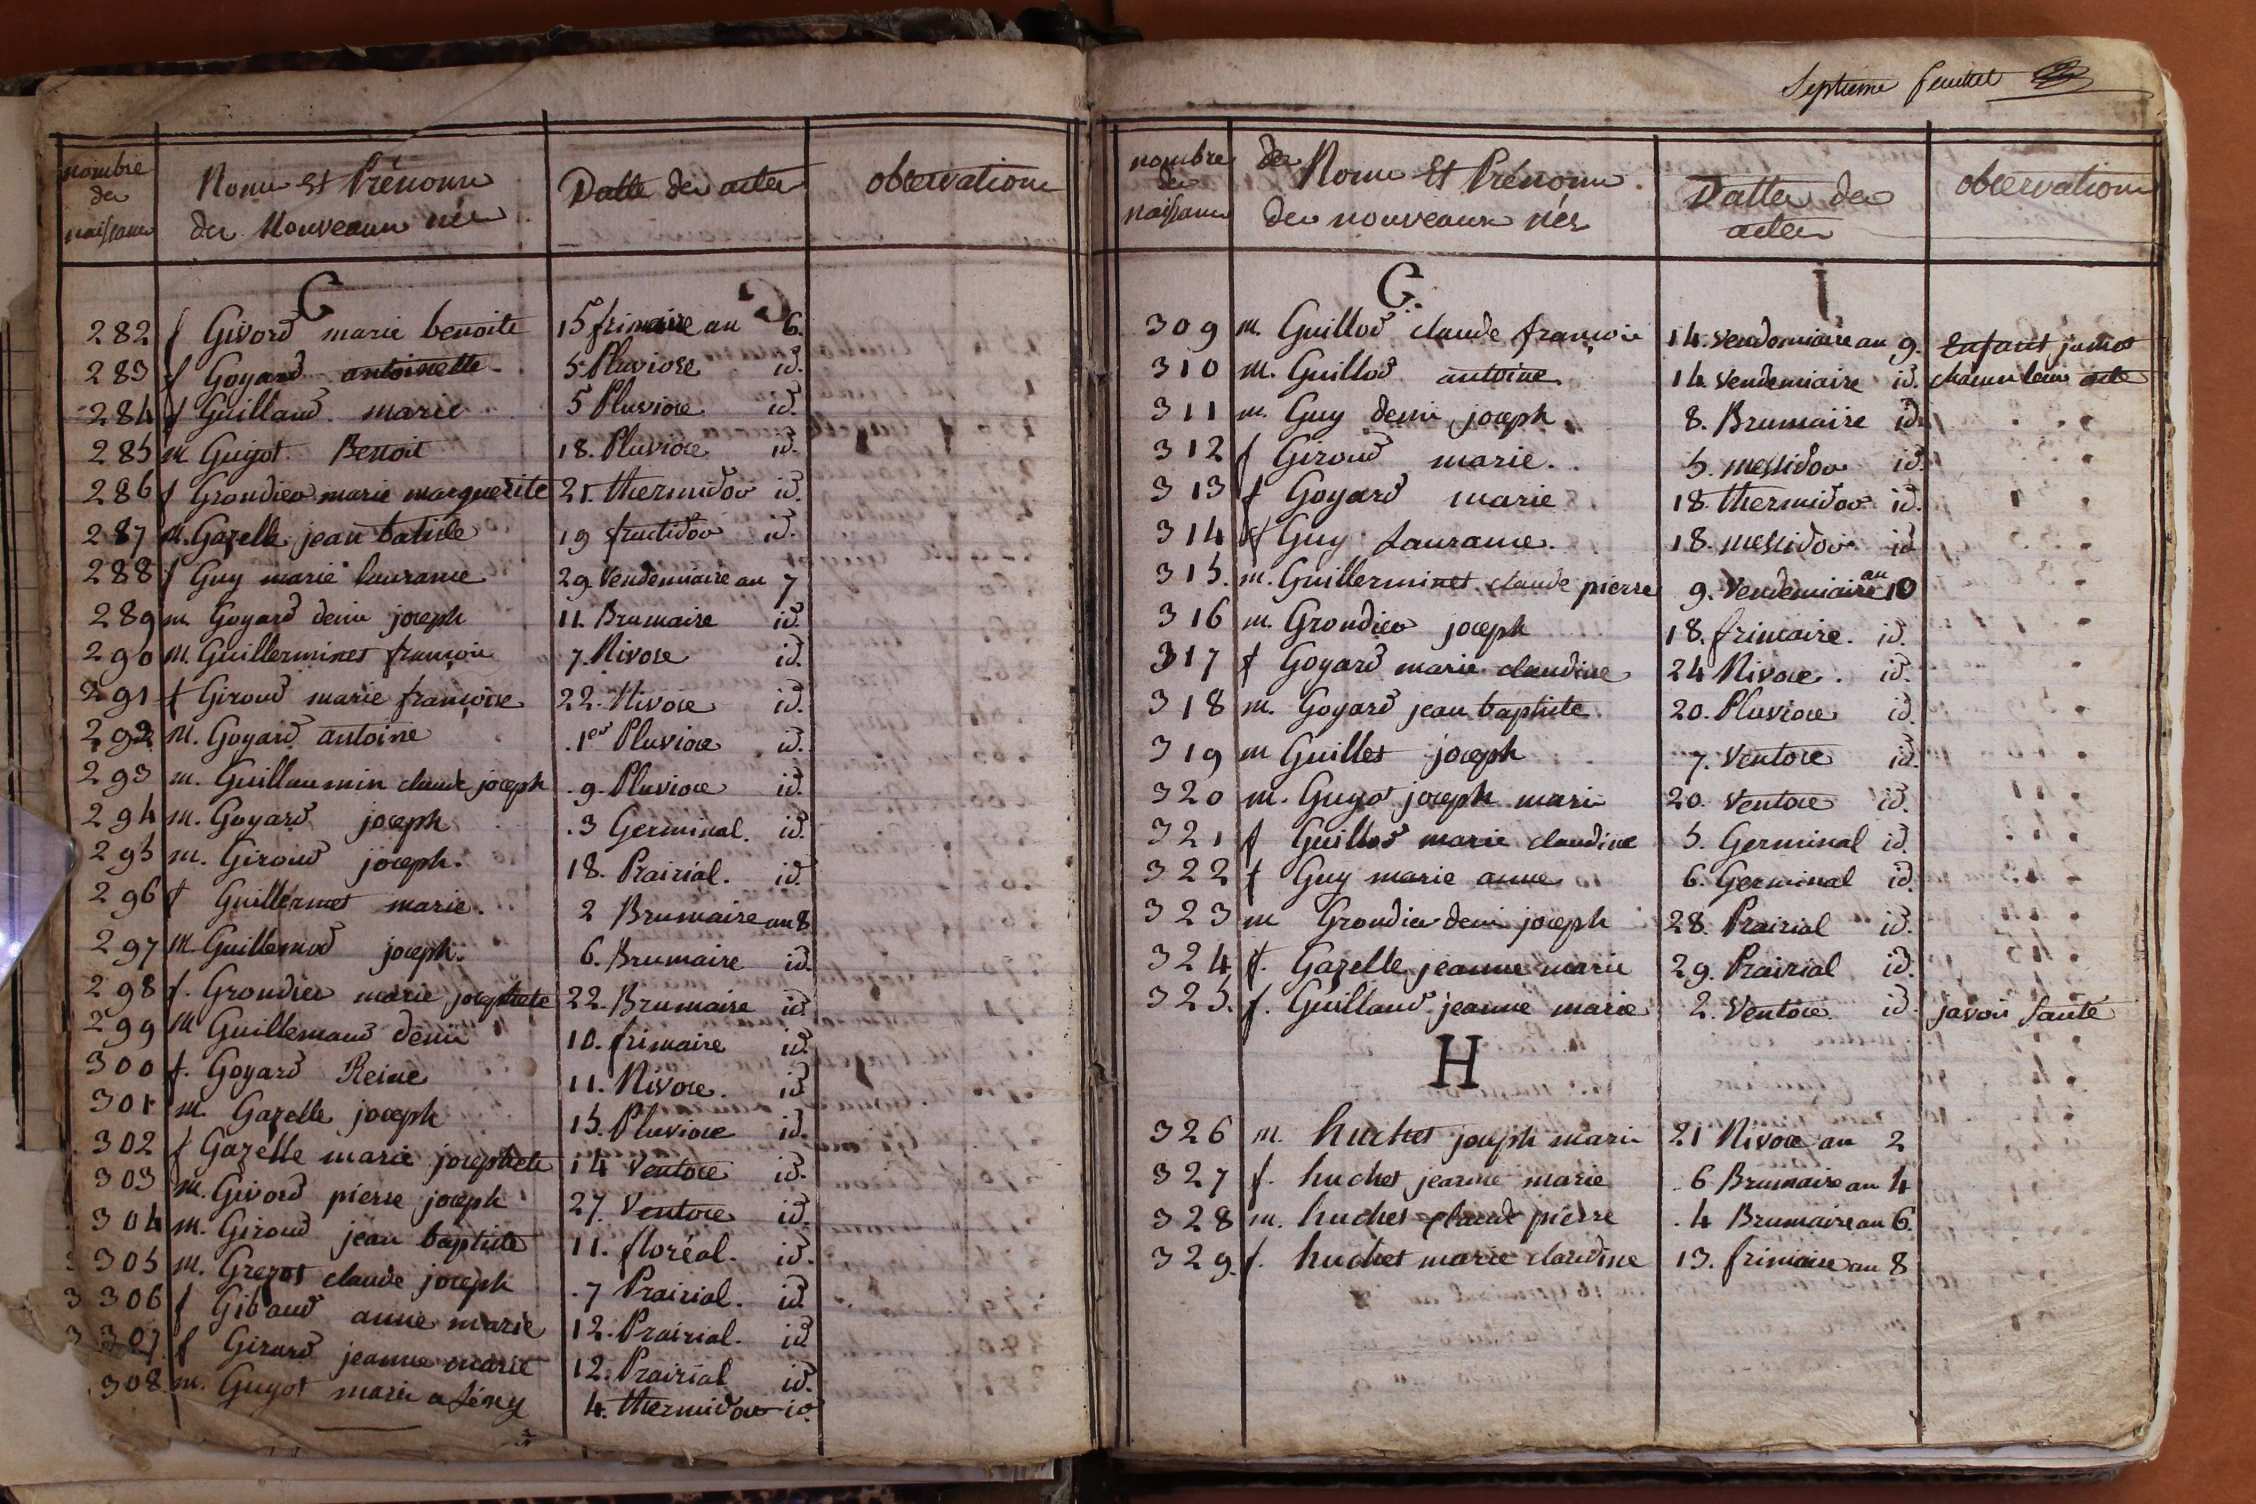 nombre
des
naissances
Noms Et Prénoms
des Nouveaux nés
Datte des actes
observations
G
282 f Givord marie benoite 15 frimaire an 6.
283 f Goyard antoinette 5 Pluviose id.
284 f Guillaud marie 5 Pluviose id.
285 m Guyot Benoit 18. Pluviose id.
286 f Grondier marie marguerite 21. thermidor id.
287 m. Gazelle jean batiste 19 fructidor id.
288 f Guy marie laurance 29. Vendemiaire an 7
289 m Goyard denis joseph 11. Brumaire id.
290 m. Guillerminet françois 7. Nivose id.
291 f Giroud marie françoise 22. Nivose id.
292 m. Goyard antoine 1er Pluviose id.
293 m. Guillaumin claude joseph 9. Pluviose id.
294 m. Goyard joseph 3 Germinal. id.
295 m. Giroud joseph. 18. Prairial. id.
296 f Guillermet marie. 2 Brumaire an 8
297 m. Guillemod joseph. 6. Brumaire id.
298 f. Grondier marie josephete 22. Brumaire id.
299 m Guillemaud denis 10. frimaire id.
300 f. Goyard Reine 11. Nivose. id
301 m. Gazelle joseph 15. Pluviose id.
302 f Gazelle marie josephete 14 Ventose id.
303 m. Givord pierre joseph 27. Ventose id.
304 m. Giroud jean baptiste 11. floréal. id.
305 m. Grezot claude joseph 7 Prairial. id.
306 f Gibaud anne marie 12. Prairial. id
307 f Girard jeanne marie 12. Prairial id.
308 m. Guyot marie 4. thermidor id.
Septieme feuillet
nombre
des
naissances
des Noms Et Prénoms
des nouveaux nés
Dattes des
actes
observations
G.
309 m. Guillod claude françois 14. Vendemiaire an 9. Enfants jumos
310 m. Guillod antoine 14 Vendemiaire id. chacun leur acte
311 m. Guy denis joseph 8. Brumaire id.
312 f Giroud marie. 5. messidor id.
313 f Goyard marie 18 thermidor id.
314 f Guy Laurance. 18. messidor id
315. m. Guillerminet claude pierre 9. Vendemiaire an 10
316 m. Grondier joseph 18. frimaire. id.
317 f Goyard marie claudine 24 Nivose. id.
318 m. Goyard jean baptiste 20. Pluviose id.
319 m Guillet joseph 7. Ventose id.
320 m. Guyot joseph marie 20. Ventose id.
321 f Guillod marie claudine 5. Germinal id.
322 f Guy marie anne 6. Germinal id.
323 m Grondier denis joseph 28. Prairial id.
324 f. Gazelle jeanne marie 29. Prairial id.
325. f. Guillaud jeanne marie 2. Ventose id. javois sauté
H
326 m. huchet joseph marie 21 Nivose an 2
327 f. huchet jeanne marie 6 Brumaire an 4
328 m. huchet claude pierre 4 Brumaire an 6.
329. f. huchet marie claudine 13. frimaire an 8